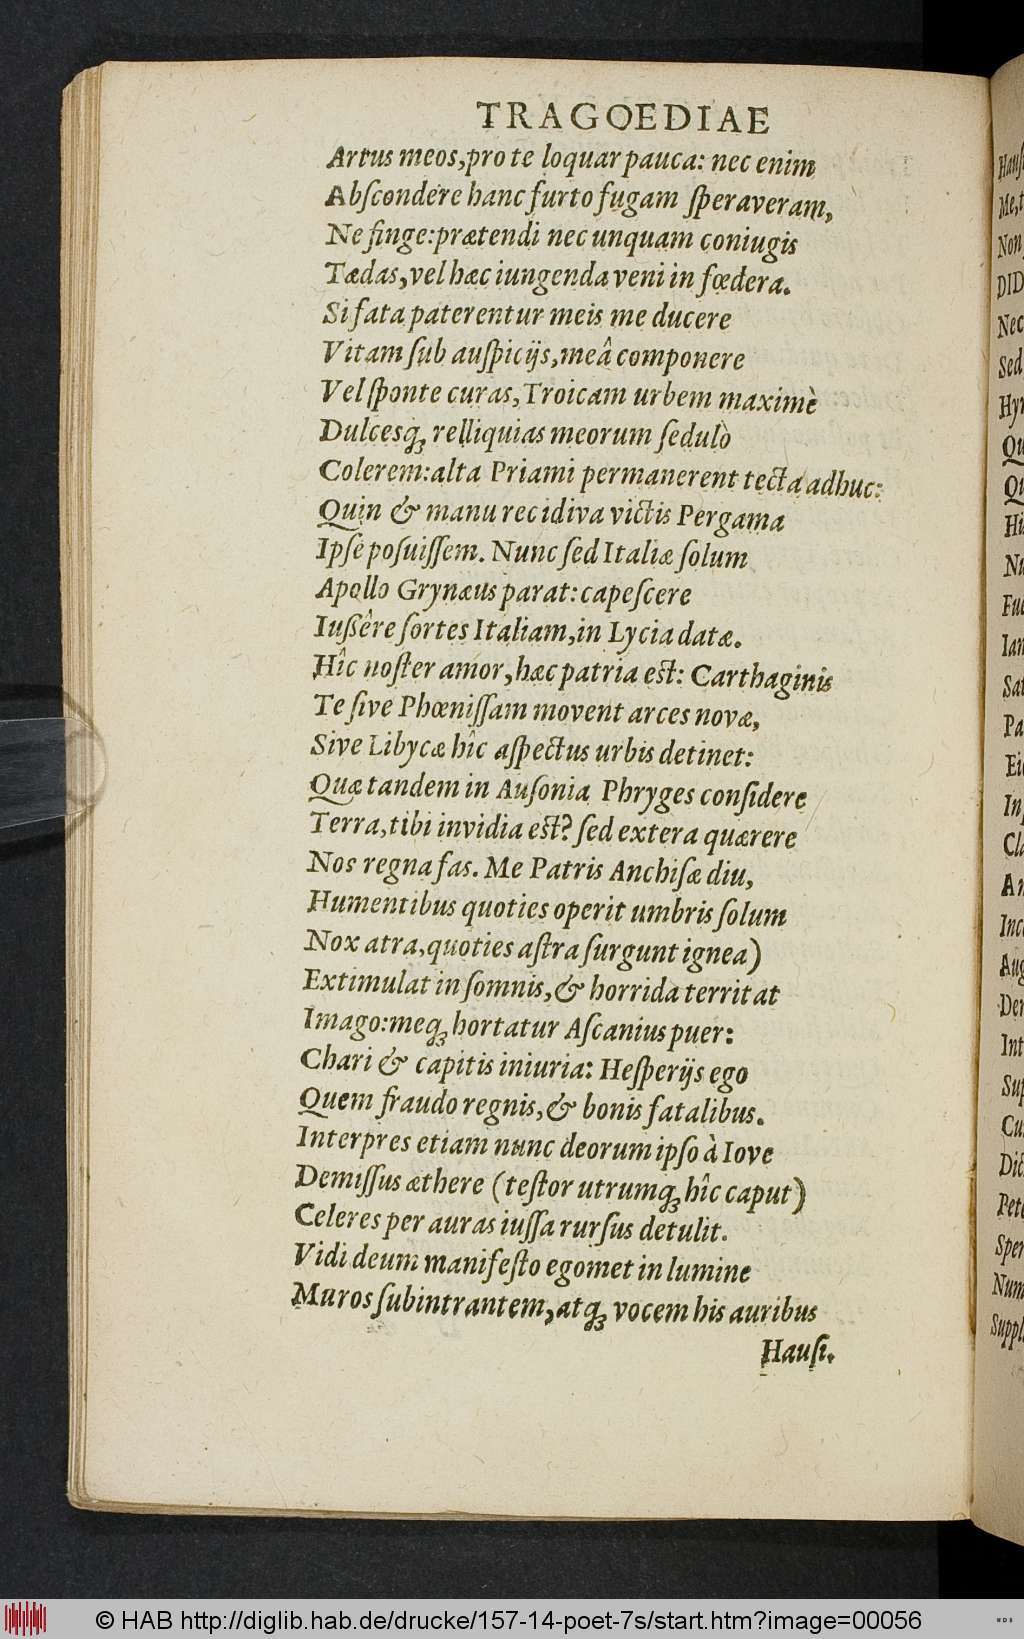 TRAGOEDIAE
Artus meos,pro te loquar pauca: nec enim
Abſcondere hanc furto fugam ſperaveram,
Ne finge:prætendi nec unquam coniugis
Tædas,vel hæc iungenda veni in fœdera.
Si fata paterentur meis me ducere
Vitam ſub auſpicijs,meâ componere
Vel ſponte curas,Troicam urbem maximè
Dulcesq́ꝫ relliquias meorum ſedulò
Colerem:alta Priami permanerent tecta adhuc:
Quin & manu recidiva victis Pergama
Ipſe poſuiſſem. Nunc ſed Italiæ ſolum
Apollo Grynæus parat:capeſcere
Iußêre ſortes Italiam,in Lycia datæ.
Hîc noſter amor,hæc patria eſt: Carthaginis
Te ſive Phœniſſam movent arces novæ,
Sive Libycæ hîc aſpectus urbis detinet:
Quæ tandem in Auſonia Phryges conſidere
Terra,tibi invidia eſt? ſed extera quærere
Nos regna fas. Me Patris Anchiſæ diu,
Humentibus quoties operit umbris ſolum
Nox atra,quoties aſtra ſurgunt ignea)
Extimulat in ſomnis,& horrida territat
Imago:meqꝫ hortatur Aſcanius puer:
Chari & capitis iniuria: Heſperijs ego
Quem fraudo regnis,& bonis fatalibus.
Interpres etiam nunc deorum ipſo à Iove
Demiſſus æthere (teſtor utrumqꝫ hîc caput)
Celeres per auras iuſſa rurſus detulit.
Vidi deum manifeſto egomet in lumine
Muros ſubintrantem,atqꝫ vocem his auribus
Hauſi.
Me,t
Non
DID
Nec
Sed
Hyr
Qu
Qu
Hi
Nu
Fuc
Ian
Sat
Pa
Eic
Inp
Cla
An
Ince
Aug
Der
Int
Sup
Cu
Dic
Pete
Sper
Num
Suppl
© HAB http://diglib.hab.de/drucke/157-14-poet-7s/start.htm?image=00056